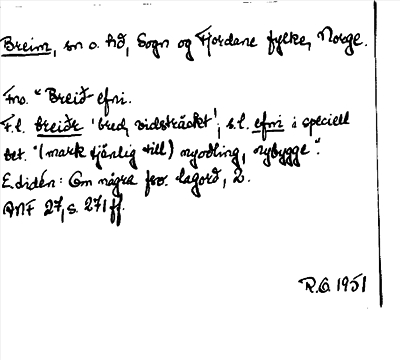 Breim, sn o. hd, Sogn og Fjordane fylke, Norge.
Fno. *Breið-efni.
F.l. breiðr 'bred, vidsträckt'; s.l. efni i speciell
bet. "(mark tjänlig till) nyodling, nybygge".
E. Lidén: Om några fno. lagord, 2.
ANF 27, s. 271 ff.
R.O. 1951